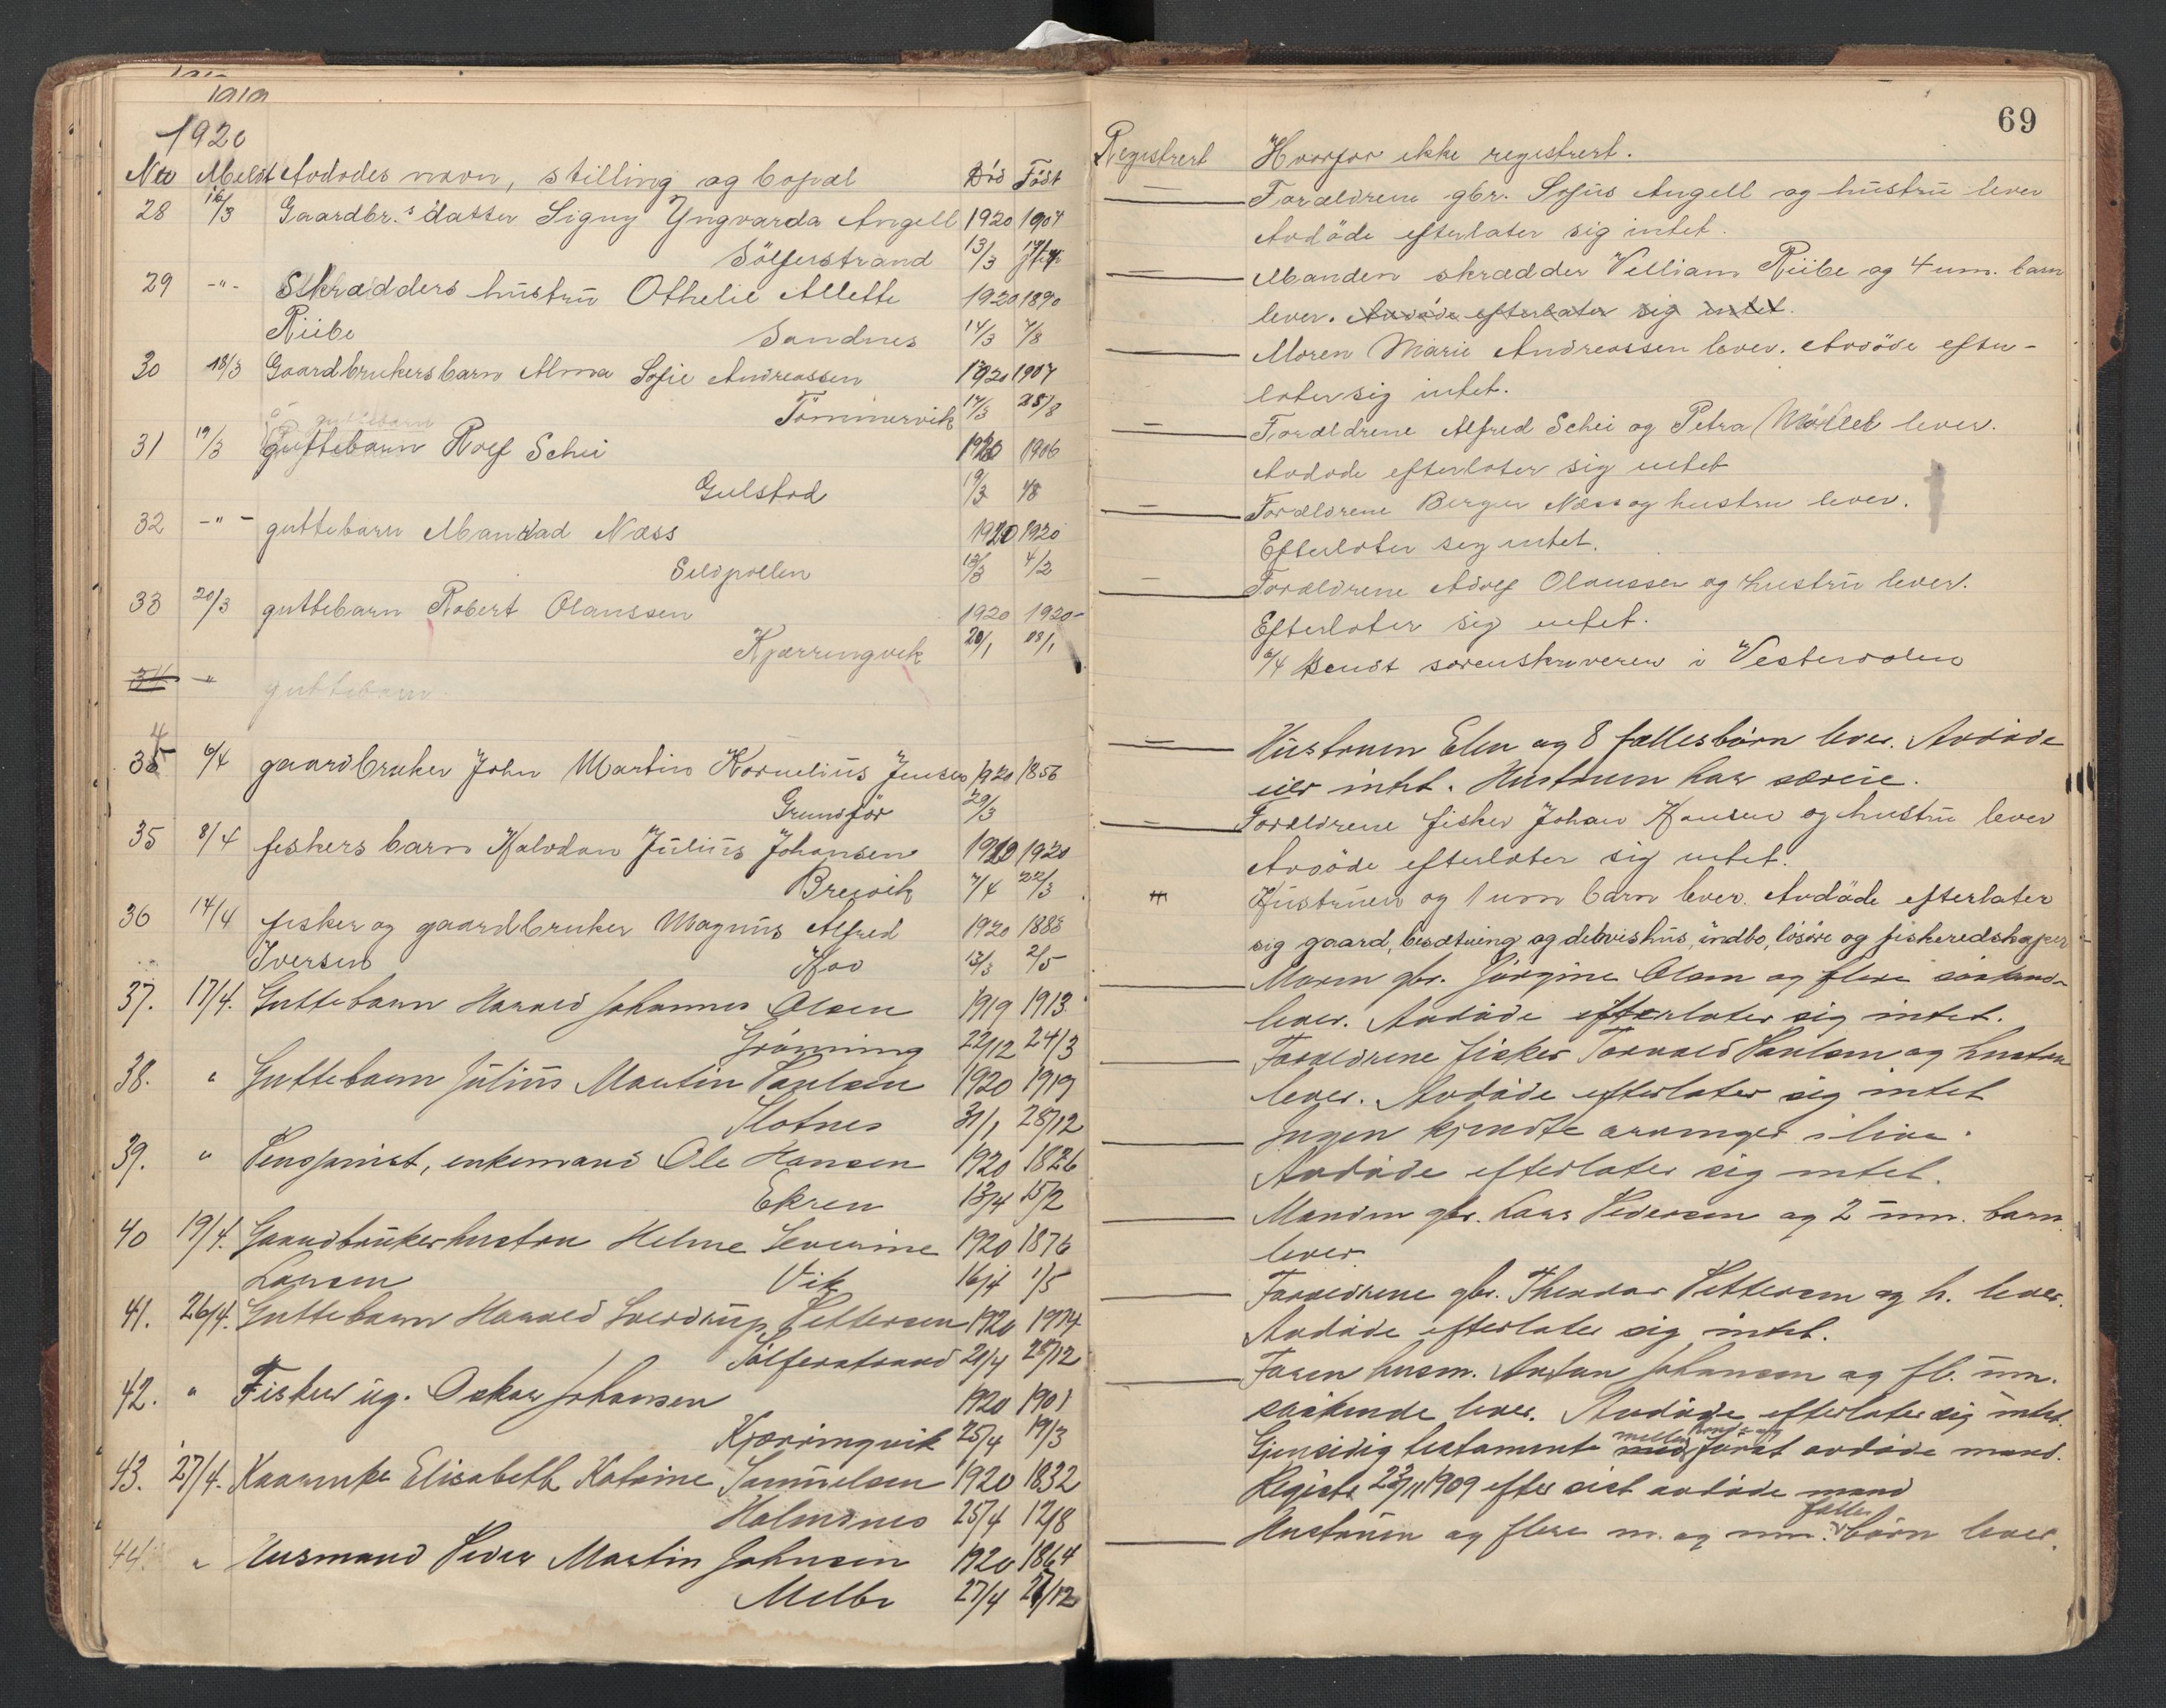 1920
No Meldt Avdødes navn, stilling og bopæl Död Födt
28 16/3 Gaardbr.s datter Signy Yngvarda Angell 1920 1904
Sölferstrand 13/3
29 -"- Skrædders hustrü Othelie Allette 1920 1890
Riibe Sandnes 14/3 7/8
30 18/3 Gaardbrukersbarn Alma Sofie Andreassen 1920 1907
Tömmervik 14/3 25/8
31 19/3 guttebarn Rolf Schei 1920 1906
Gulstad 19/3
32 -"- guttebarn Mandrad Næss 1920 1920
Sildpollen 4/2
33 20/3 guttebarn Robert Olaussen 1920 1920
Kjærringvik 20/1 /1
34 " guttebarn
34 6/4 gaardbruker John Martin Kornelius Jensen 1920 1856
Grundför 29/3
35 8/4 fiskers barn Halvdan Jülius Johansen 1920 1920
Breivik 7/4 22/3
36 14/4 fisker og gaardbruker Magnüs Alfred 1920 1888
Iversen Hov 13/3 2/5
37. 17/4. Guttebarn Harald Johannes Olsen 1919 1913
Grønning 22/12 24/3
38. " Guttebarn Jülius Martin Paulsen 1920 1919
Slotnes 31/1 28/12
39. " Pensjonist, enkemand Ole Hansen 1920 1826
Ekren 13/4 15/2
40 19/4. Gaardbrükerhustru Helene Severine 1920 1876
Larsen Vik 16/4 1/5
41. 26/4. Guttebarn Harald Sverdrüp Pettersen 1920 1914
Sölferstrand 21/4 28/12
42. " Fisker üg. Oskar Johansen 1920 1901
Kjærringvik 25/4 19/3
43. 27/4. Kaarenke Elisabeth Katrine Samüelsen 1920 1832
Holmsnes 25/4 12/8
44. " Husmand Peder Martin Johnsen 1920 1864
Melbo 27/4 21/12
69
Registrert Hvorfor ikke registrert.
Forældrene gbr. Sofüs Angell og hüstrü lever
Avdöde efterlater sig intet.
Manden skrædder Villiam Riibe og 4 um. barn
lever. Avdöde efterlater sig intet.
Moren Marie Andreassen lever. Avdöde efter-
later sig intet.
Forældrene Alfred Schei og Petra Møller lever.
Avdøde efterlater sig intet
Forældrene Berger Næss og hustru lever.
Efterlater sig intet.
Forældrene Adolf Olaussen og hustrü lever.
Efterlater sig intet.
6/4 Sendt sorenskriveren i Vesteraalen
Hüstruen Elen og 8 fællesbörn lever. Avdøde
eier intet. Hustruen har særeie.
Forældrene fisker Johan Hansen og hustrü lever
Avdöde efterlater sig intet.
Hüstrüen og 1 um barn lever. Avdöde efterlater
sig gaard, besætning og delvishüs, indbo, lösöre og fiskeredskaper
Moren gbr. Jørgine Olsen og flere søskend-
lever. Avdøde efterlater sig intet.
Forældrene fisker Torvald Paulsen og hustru
lever. Avdøde efterlater sig intet
Ingen kjendte arvinger i live.
Avdøde efterlater sig intet.
Manden gbr. Lars Pedersen og 2 üm. barn
lever.
Forældrene gbr. Theodor Pettersen og h. lever.
Avdøde efterlater sig intet.
Faren husm. Anton Johansen og fl. üm.
søskende lever. Avdøde efterlater sig intet.
Gjensidig testamente mellem og først avdøde mand.
Registr. 23/11 1909 efter sist avdøde mand
Hustruen og flere m. og um. fælles børn lever.